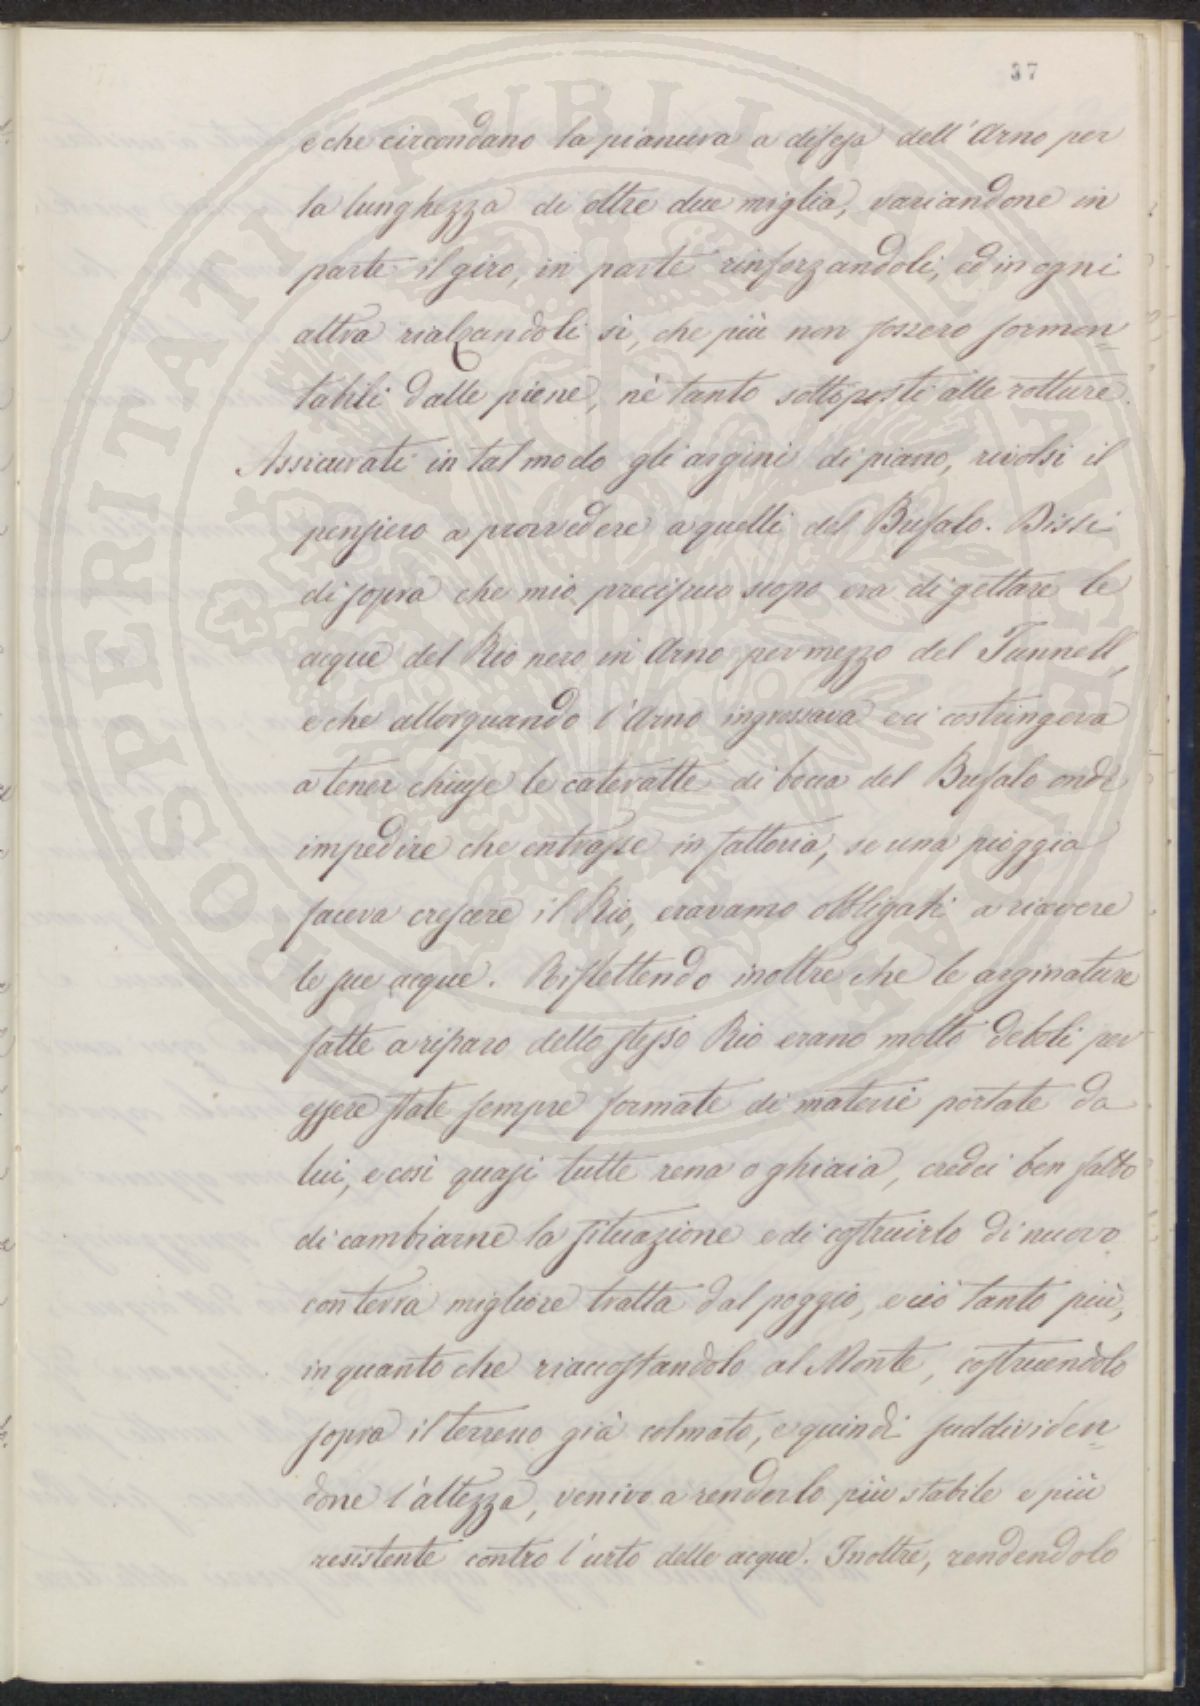 37
e che circondano la pianura a difesa dell'Arno per
la lunghezza di oltre due miglia, variandone in
parte il giro, in parte rinforzandoli, ed in ogni
altra rialzandoli sì, che più non fossero sormon=
tabili dalle piene, nè tanto sottoposti alle rotture.
Assicurati in tal modo gli argini di piano, rivolsi il
pensiero a provvedere a quelli del Bufalo. Dissi
di sopra che mio precipuo scopo era di gettare le
acque del Rio nero in Arno per mezzo del Tunnell,
e che allorquando l'Arno ingrossava e ci costringeva
a tener chiuse le cateratte di bocca del Bufalo onde
impedire che entrasse in fattoria, se una pioggia
faceva crescere il Rio, eravamo obbligati a ricevere
le sue acque. Riflettendo inoltre che le arginature
fatte a riparo dello stesso Rio erano molto deboli per
essere state sempre formate di materie portate da
lui, e così quasi tutte rena o ghiaia, credei ben fatto
di cambiarne la situazione e di costruirlo di nuovo
con terra migliore tratta dal poggio, e ciò tanto più,
in quanto che riaccostandolo al Monte, costruendolo
sopra il terreno già colmato, e quindi suddividen=
done l'altezza, venivo a renderlo più stabile e più
resistente contro l'urto delle acque. Inoltre, rendendolo
PROSPERITATI PUBLICAE AUGENDAE